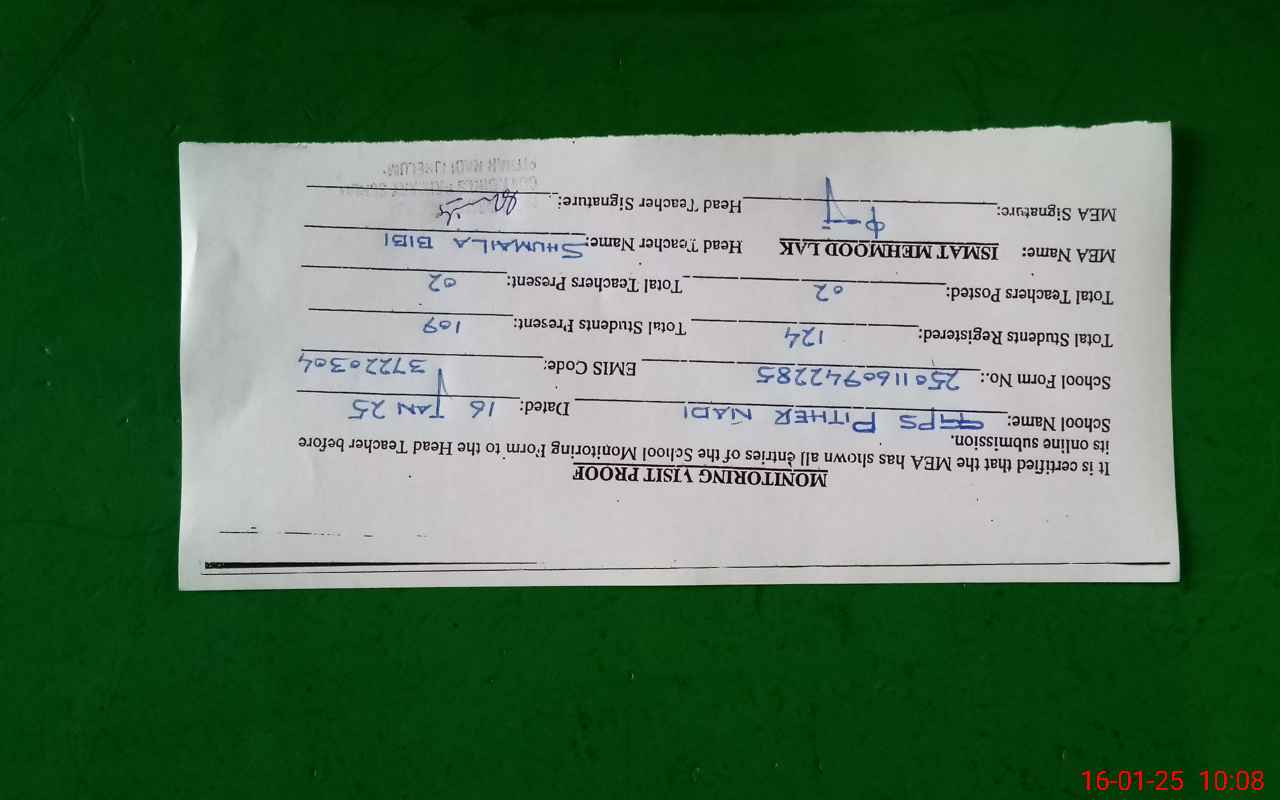 MONITORING VISIT PROOF
It is certified that the MEA has shown all entries of the School Monitoring Form to the Head Teacher before
its online submission.
School Name: GGPS PITHER NADI Dated: 16 JAN 25
School Form No.: 2501160942285 EMIS Code: 37220304
Total Students Registered: 124 Total Students Present: 109
Total Teachers Posted: 02 Total Teachers Present: 02
MEA Name: ISMAT MEHMOOD LAK Head Teacher Name: SHUMAILA BIBI
MEA Signature: Head Teacher Signature:
16-01-25 10:08